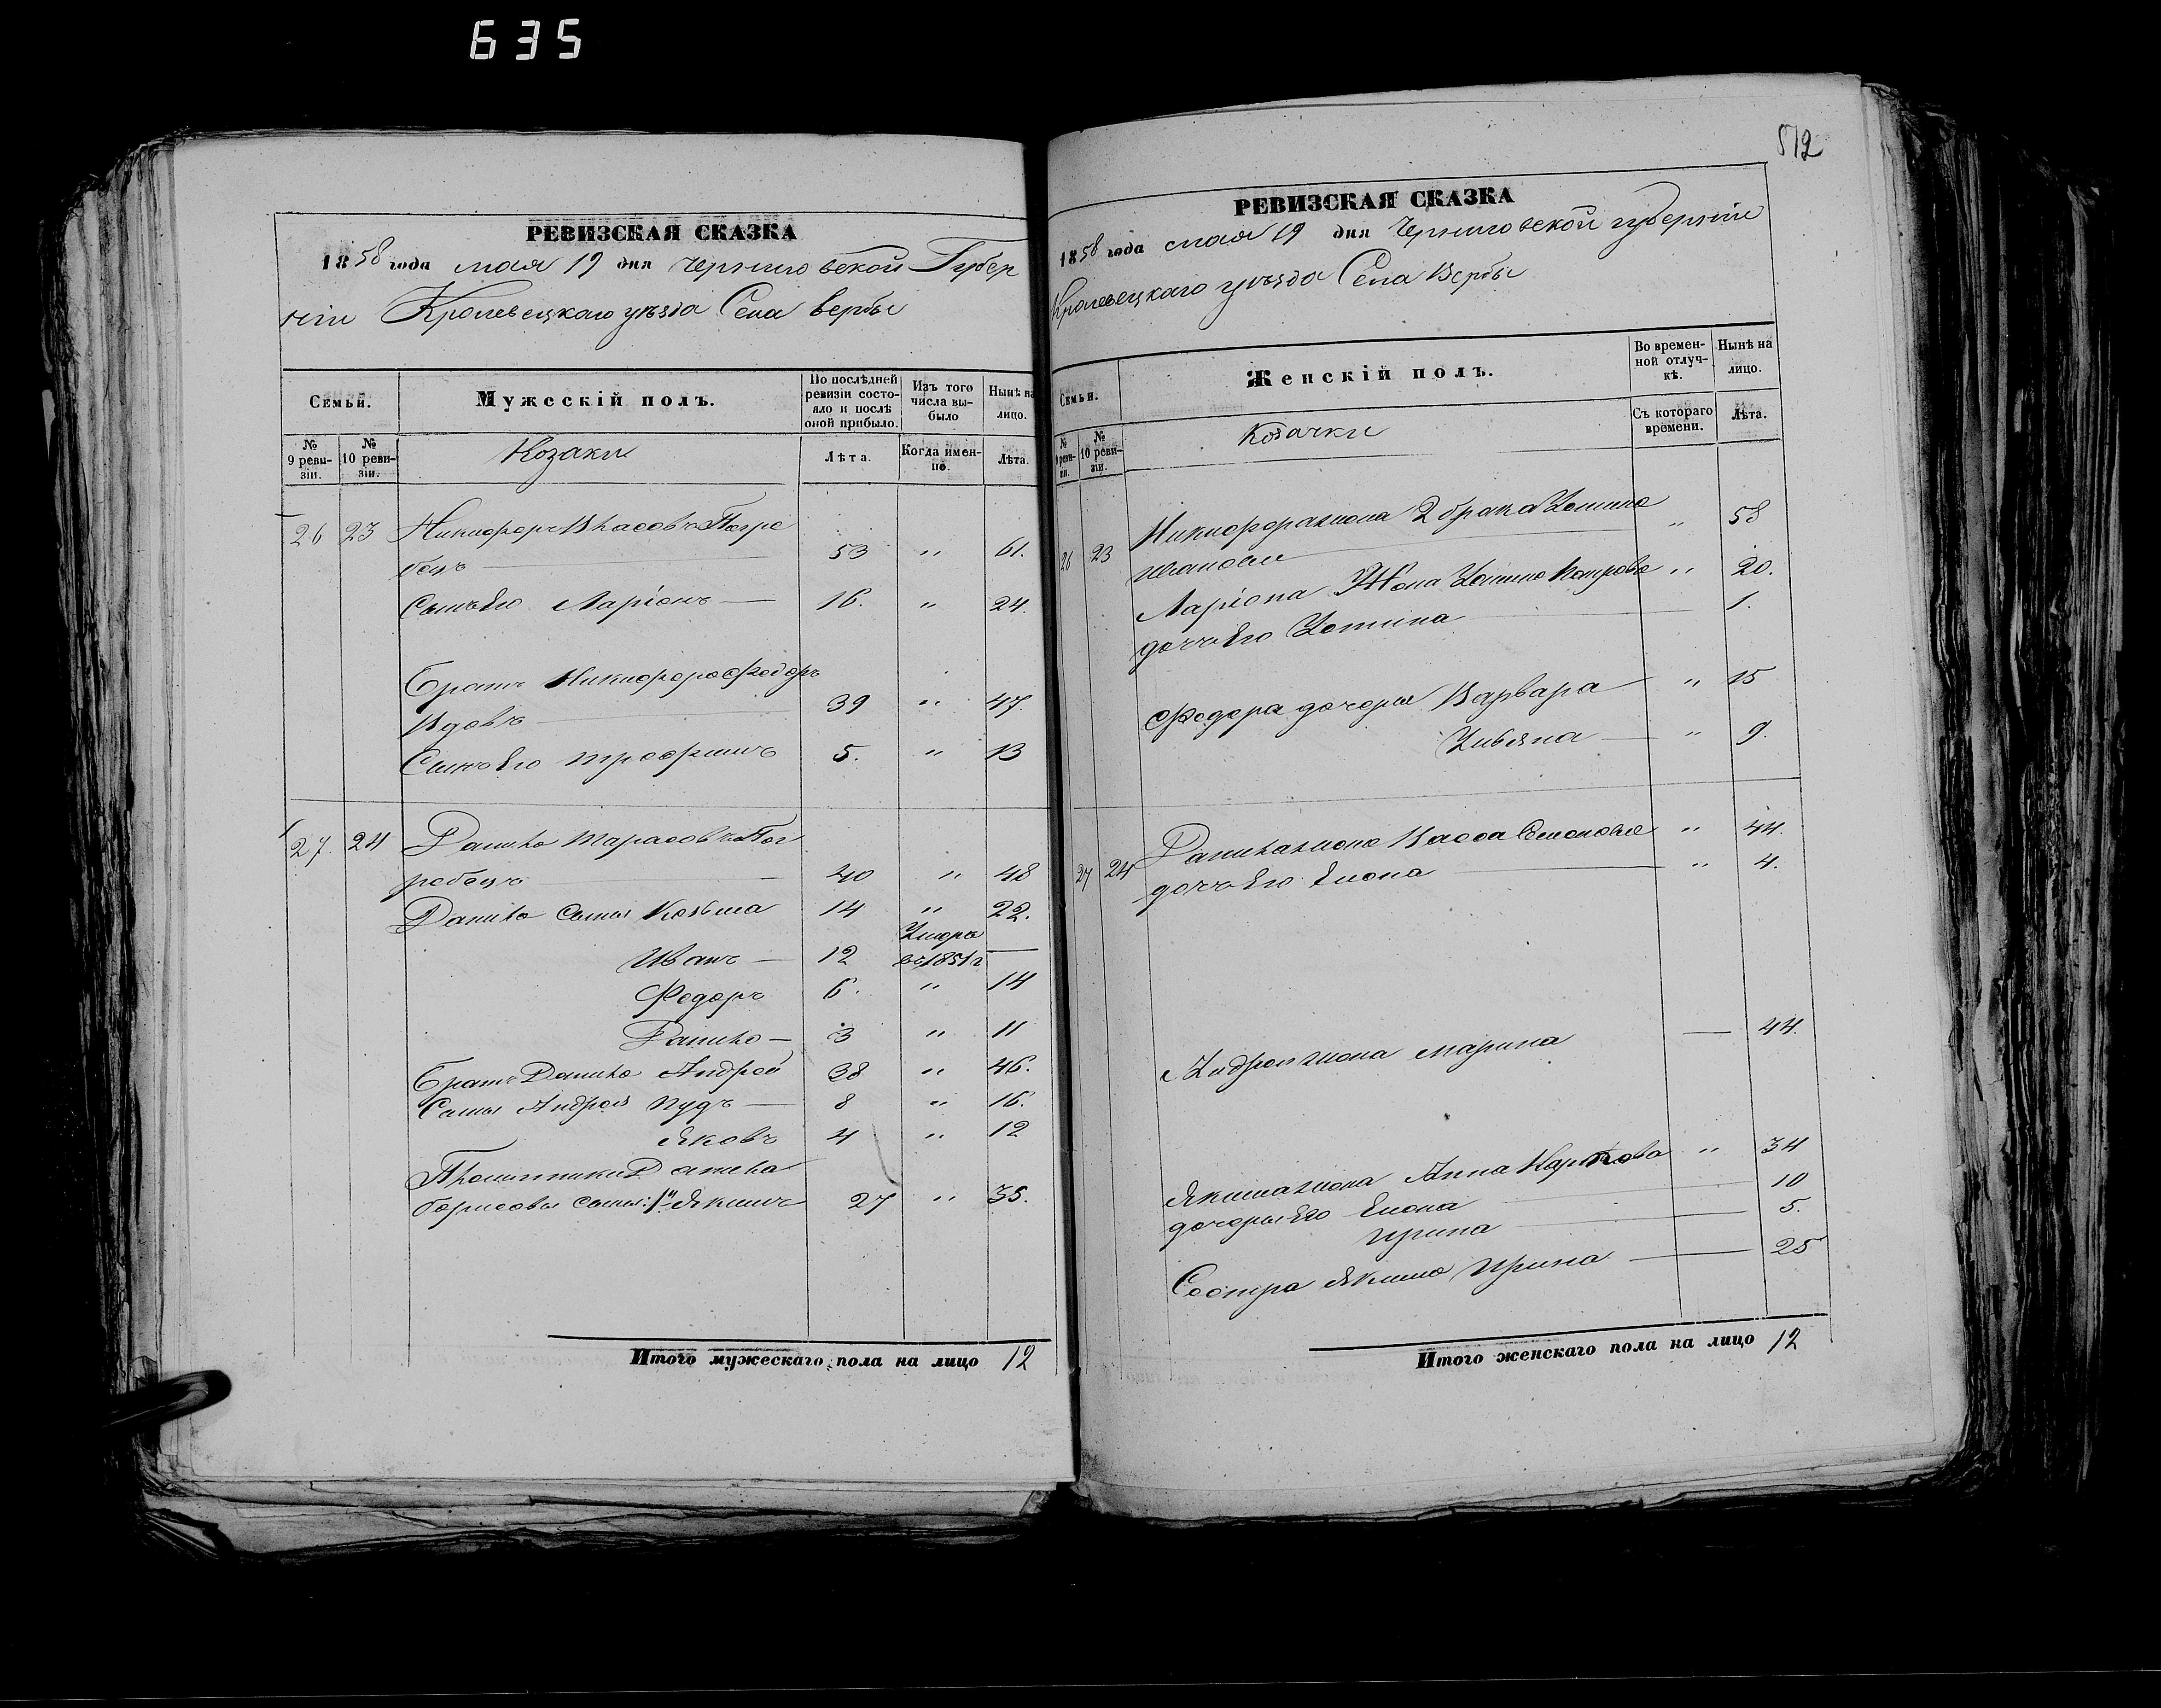 635
РЕВИЗСКАЯ СКАЗКА
1858 года мая 19 дня Черниговской Губер
ніи Кролевецкаго уѣзда Села Вербы
Семьи.
Мужескій полъ.
По послѣдней ревизіи состояло и послѣ оной прибыло.
Изъ того числа выбыло
Нынѣ на лицо.
№ 9 ревизіи.
№ 10 ревизіи.
Козаки
Лѣта.
Когда именно.
Лѣта.
26 23 Никифоръ Власовъ Погре
бецъ 53 " 61.
Сынъ Его Ларіонъ 16. " 24.
Братъ Никифора Федоръ
Вдовъ 39 " 47.
Сынъ Его Трофимъ 5. " 13
27. 24 Данило Тарасовъ Пог
ребецъ 40 " 48
Данила Сыны Козьма 14 " 22.
Умре
Иванъ 12 въ 1851 г —
Федоръ 6. " 14
Данило 3 " 11
Братъ Данила Андрей 38 " 46.
Сыны Андрея Пудъ 8 " 16.
Яковъ 4 " 12
Племянники Данила
Борисовы Сыны: 1й Якимъ 27 " 35.
Итого мужескаго пола на лицо 12
512
РЕВИЗСКАЯ СКАЗКА
1858 года мая 19 дня Черниговской губерніи
Кролевецкаго уѣзда Села Вербы
Семьи.
Женскій полъ.
Во временной отлучкѣ.
Нынѣ на лицо.
№ 9 ревизіи.
№ 10 ревизіи.
Козачки
Съ котораго времени.
Лѣта.
26 23 Никифора жена 2 брака " 58
Ларіона Жена Петрова " 20.
дочь Его 1.
Федора дочери Варвара " 15
Ульяна " 9.
27 24 Данила жена Васса Семенова " 44.
дочь Его Елена " 4.
Андрея жена Марина — 44.
Якима жена Анна Карпова " 34
дочери Его Елена 10
Ирина 5.
Сестра Якима Ирина 25
Итого женскаго пола на лицо 12